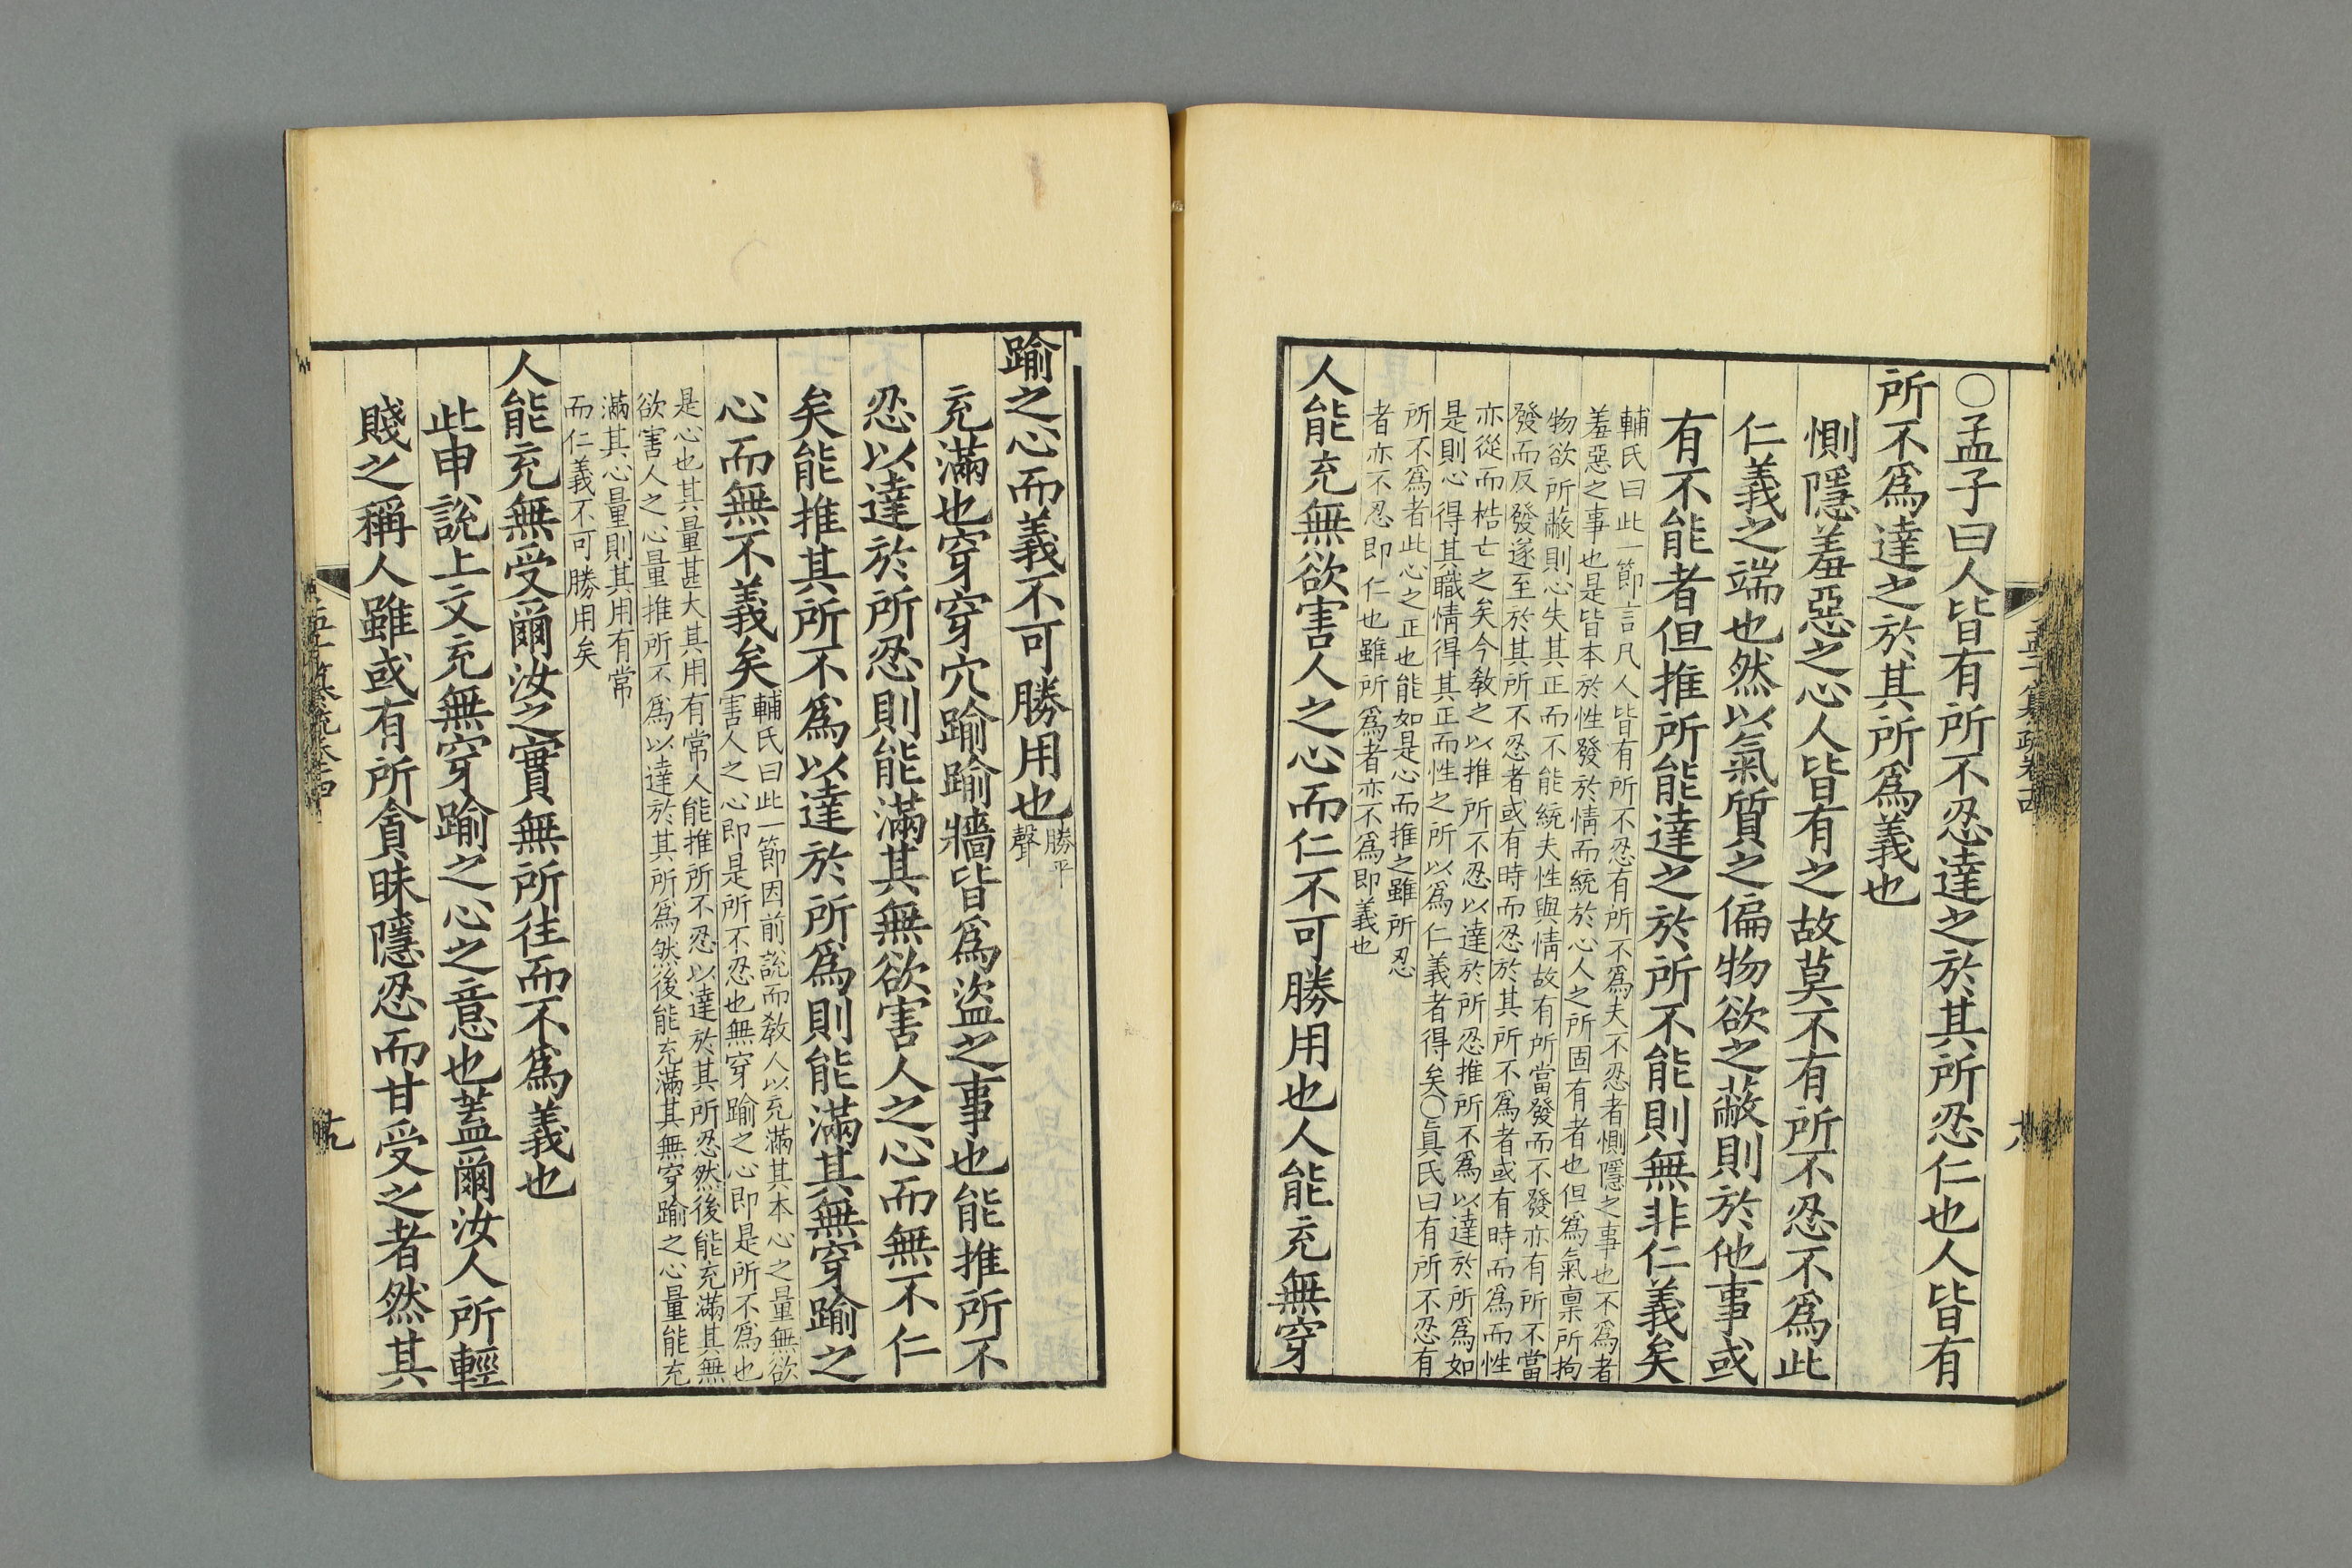 ○孟子曰人皆有所不忍達之於其所忍仁也人皆有
所不爲達之於其所爲義也
惻隱羞惡之心人皆有之故莫不有所不忍不爲此
仁義之端也然以氣質之偏物欲之蔽則於他事或
有不能者但推所能達之於所不能則無非仁義矣
輔氏曰此一節言凡人皆有所不忍有所不爲夫不忍者惻隱之事也不爲者
羞惡之事也是皆本於性發於情而統於心人之所固有者也但爲氣稟所拘
物欲所蔽則心失其正而不能統夫性與情故有所當發而不發亦有所不當
發而反發遂至於其所不忍者或有時而忍於其所不爲者或有時而爲而性
亦從而梏亡之矣今敎之以推所不忍以達於所忍推所不爲以達於所爲如
是則心得其職情得其正而性之所以爲仁義者得矣○眞氏曰有所不忍有
所不爲者此心之正也能如是心而推之雖所忍
者亦不忍即仁也雖所爲者亦不爲即義也
人能充無欲害人之心而仁不可勝用也人能充無穿
踰之心而義不可勝用也
勝平
聲
充滿也穿穿穴踰踰牆皆爲盜之事也能推所不
忍以達於所忍則能滿其無欲害人之心而無不仁
矣能推其所不爲以達於所爲則能滿其無穿踰之
心而無不義矣
輔氏曰此一節因前說而敎人以充滿其本心之量無欲
害人之心即是所不忍也無穿踰之心即是所不爲也
是心也其量甚大其用有常人能推所不忍以達於其所忍然後能充滿其無
欲害人之心量推所不爲以達於其所爲然後能充滿其無穿踰之心量能充
滿其心量則其用有常
而仁義不可勝用矣
人能充無受爾汝之實無所往而不爲義也
此申說上文充無穿踰之心之意也蓋爾汝人所輕
賤之稱人雖或有所貪昧隱忍而甘受之者然其